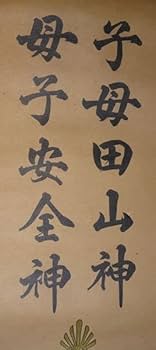 子母田山神
母子安全神